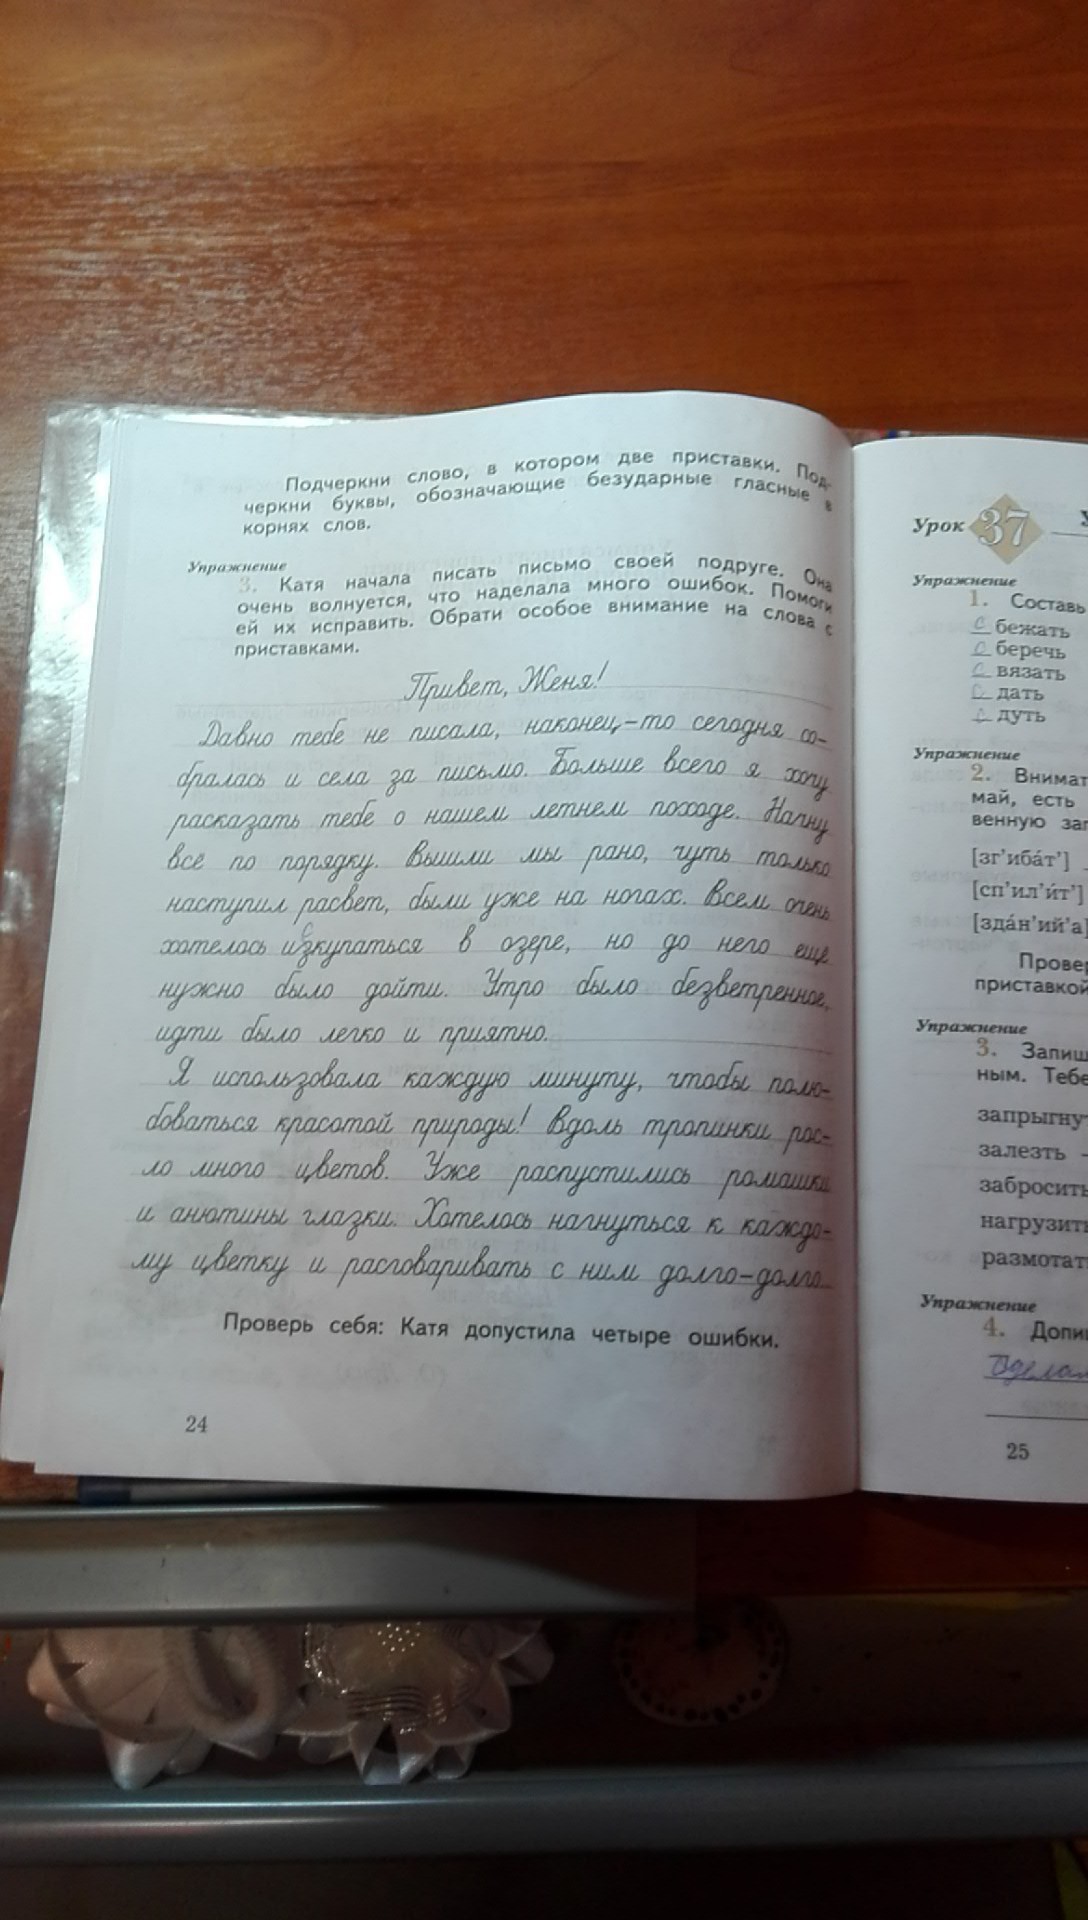 Подчеркни слово, в котором две приставки. Под-
черкни буквы, обозначающие безударные гласные в
корнях слов.
Упражнение
3. Катя начала писать письмо своей подруге. Она
очень волнуется, что наделала много ошибок. Помоги
ей их исправить. Обрати особое внимание на слова с
приставками.
Привет, Женя!
Давно тебе не писала, наконец-то сегодня со-
бралась и села за письмо. Больше всего я хочу
расказать тебе о нашем летнем походе. Начну
всё по порядку. Вышли мы рано, чуть только
наступил расвет, были уже на ногах. Всем очень
хотелось изкупаться в озере, но до него ещё
с
нужно было дойти. Утро было безветренное,
идти было легко и приятно.
Я использовала каждую минуту, чтобы полю-
боваться красотой природы! Вдоль тропинки рос-
ло много цветов. Уже распустились ромашки
и анютины глазки. Хотелось нагнуться к каждо-
му цветку и расговаривать с ним долго-долго...
Проверь себя: Катя допустила четыре ошибки.
24
Урок 37
Упражнение
1. Составь
с бежать
с беречь
с вязать
с дать
с дуть
Упражнение
2. Внимат
май, есть
венную заг
[зг'ибáт']
[сп'ил'и́т']
[здáн'ий'а]
Провер
приставкой
Упражнение
3. Запиш
ным. Тебе
запрыгну
залезть -
забросить
нагрузить
размотать
Упражнение
4. Допи
25